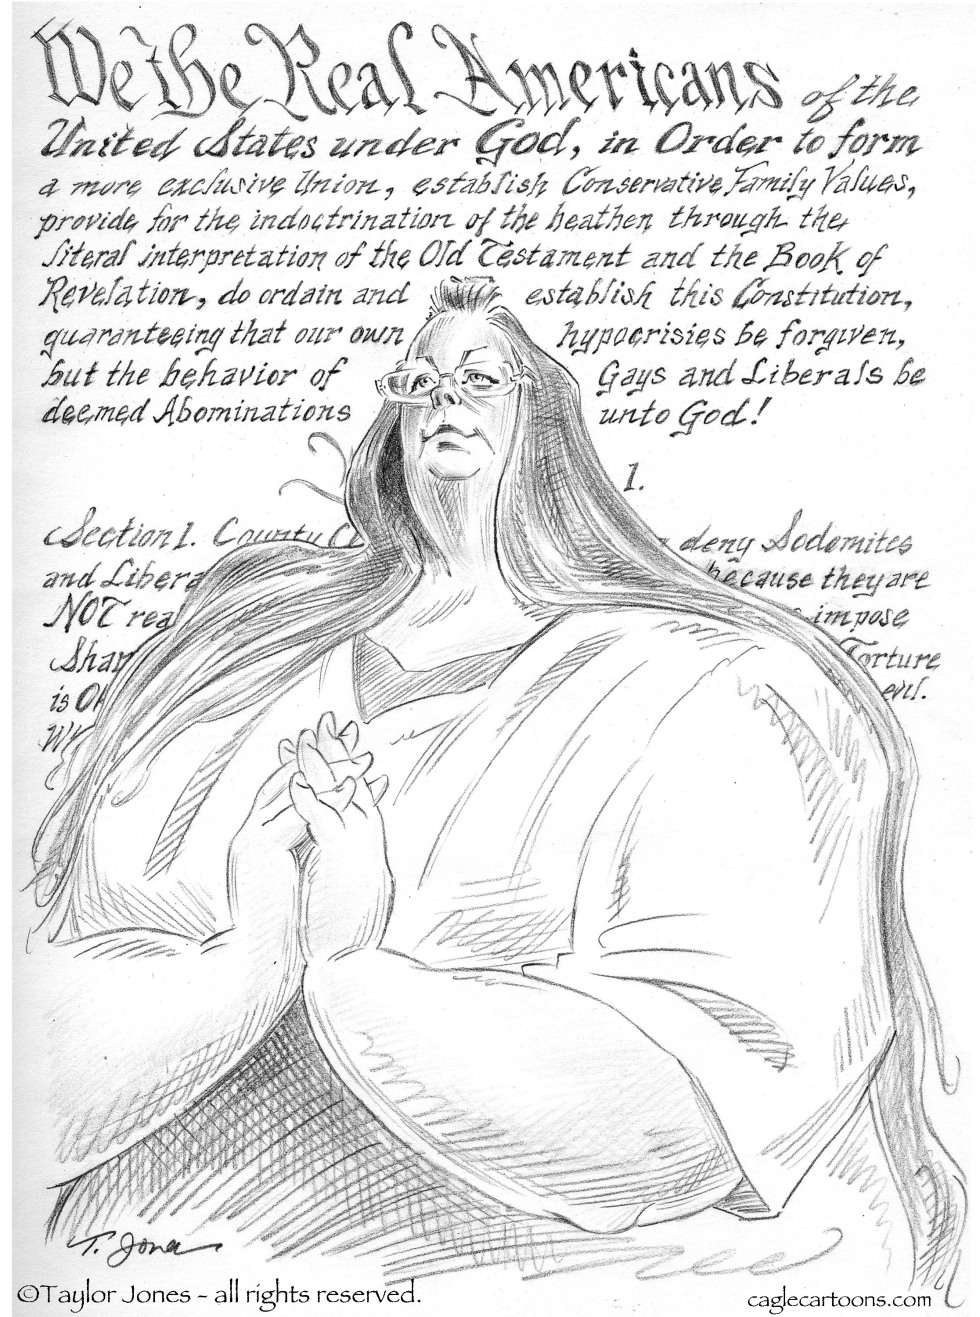 We the Real Americans of the
United States under God, in Order to form
a more exclusive Union, establish Conservative Family Values,
provide for the indoctrination of the heathen through the
literal interpretation of the Old Testament and the Book of
Revelation, do ordain and establish this Constitution,
guaranteeing that our own hypocrisies be forgiven,
but the behavior of Gays and Liberals be
deemed Abominations unto God!
1.
Section 1. County deny Sodomites
and Libera because they are
NOT real impose
Shar Torture
is OK evil.
T. Jones
©Taylor Jones - all rights reserved.
caglecartoons.com